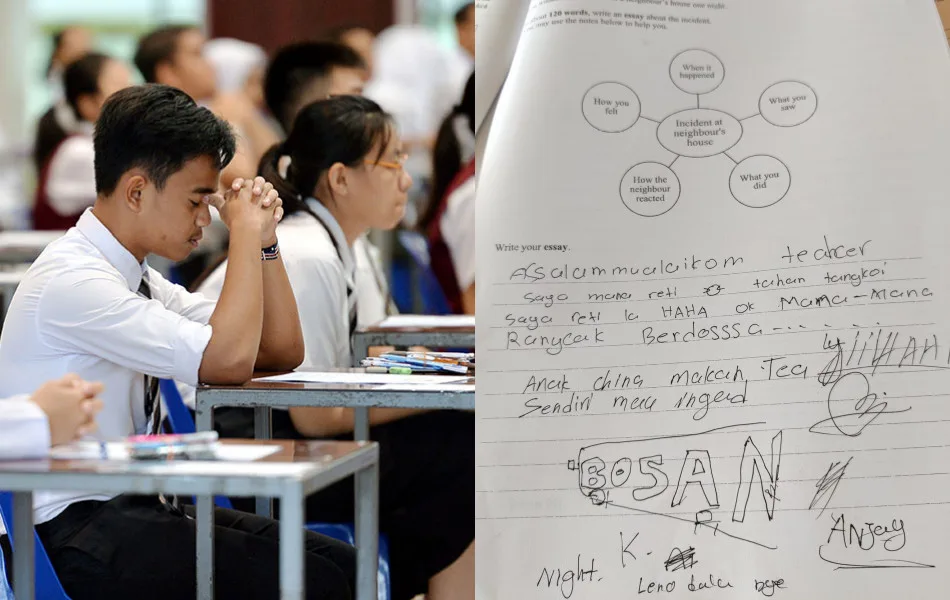 neighbour's house one night.
120 words, write an essay about the incident.
may use the notes below to help you.
When it
happened
How you
felt
What you
saw
Incident at
neighbour's
house
How the
neighbour
reacted
What you
did
Write your essay.
Assalammualaikom teacher
saya mana reti tahan tangkoi
saya reti la HAHA ok Mama-Mana
Rancak Berdosssa......
Anak china makan Tea
Sendiri mau inged
BOSAN
Anjay
Night. K.
Leno dulu bye